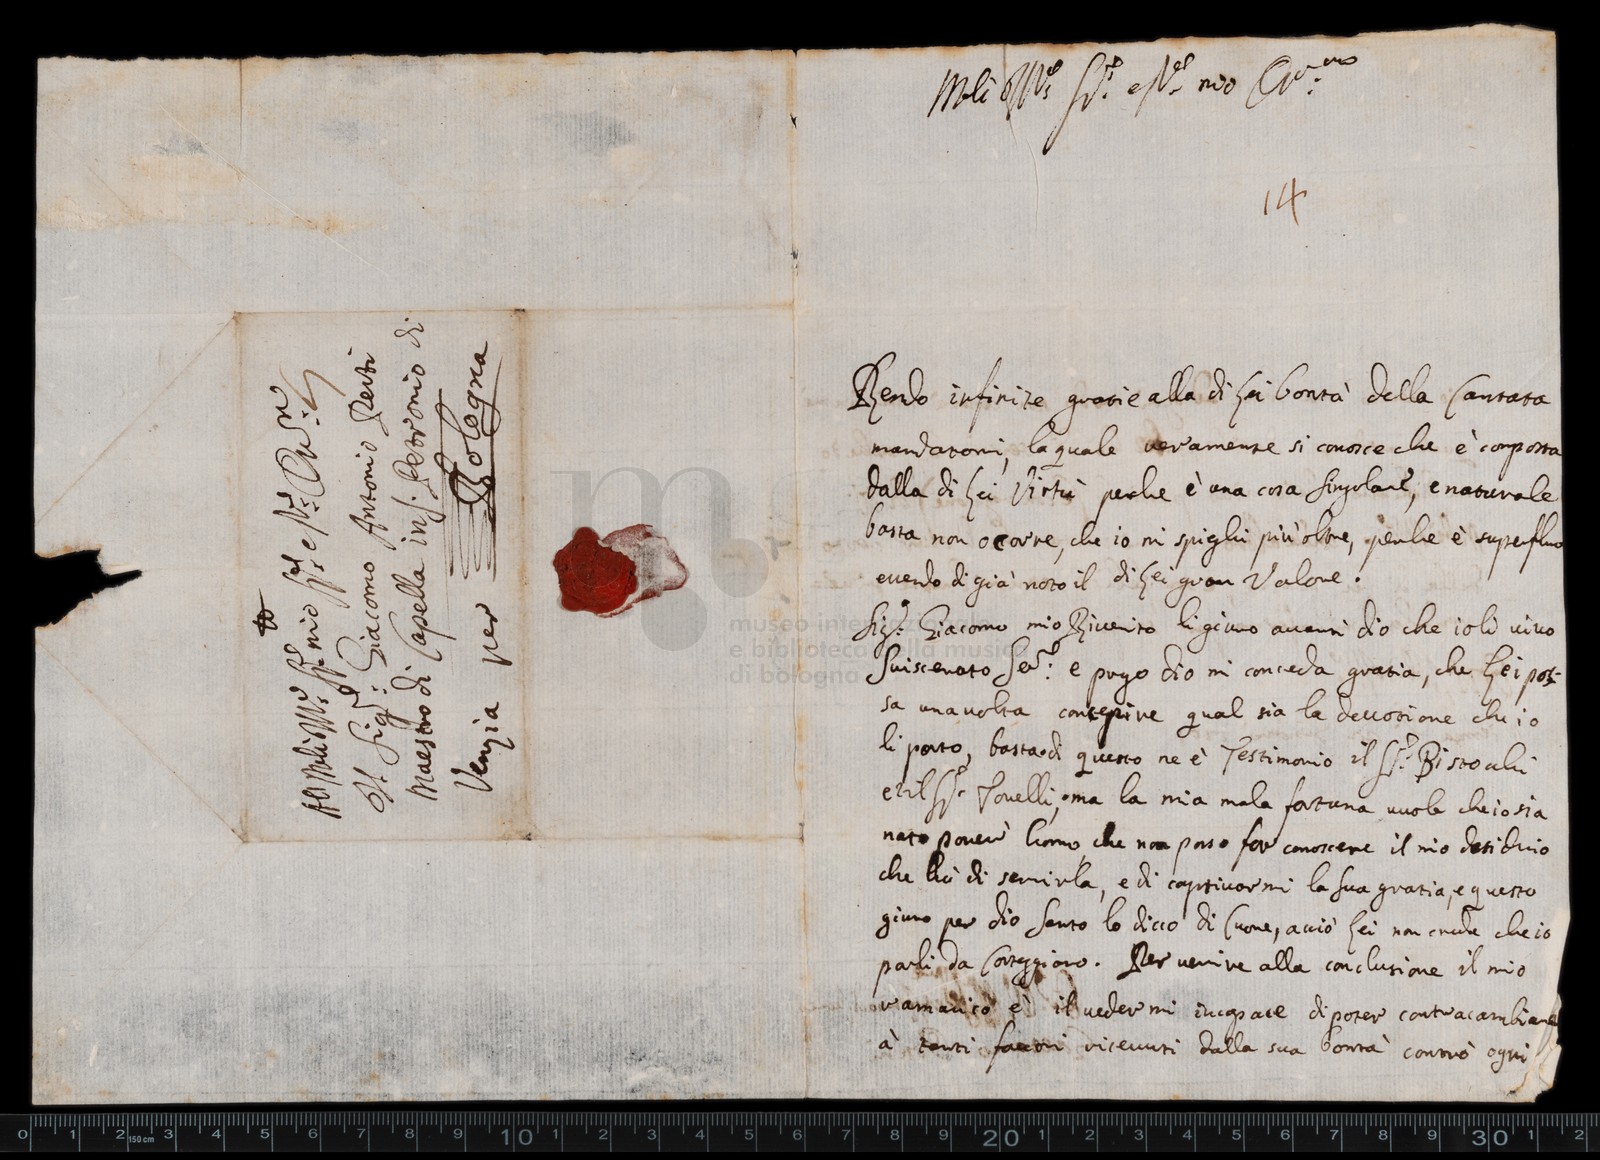 Molt' Ill:re Sig:r e P:ron mio Oss:mo
14
Rendo infinite gratie alla di Lei bontà della Cantata
mandatomi, la quale veramente si conosce che è composta
dalla di Lei Virtù perche è una cosa singolare, e naturale
basta non ocorre, che io mi spighi più oltre, perche è superfluo
essendo di già noto il di Lei gran Valore.
Sig:r Giacomo mio Riverito li giuro avanti dio che io li vivo
suiscerato Ser:re e prego dio mi conceda gratia, che Lei pos-
sa una volta conseguire qual sia la devotione che io
li porto, basta di questo ne è Testimonio il Sig:r Pistochi
et il Sig:r Tonelli, ma la mia mala fortuna vuole che io sia
nato povero homo, che non posso far conoscere il mio desiderio
che hò di servirla, e di captivarmi la sua gratia, e questo
giuro per dio Santo lo dicco di Cuore, acciò Lei non creda che io
parli da Corteggiano. Per venire alla conclusione il mio
ramarico è il vedermi incapace di poter contracambiare
à tanti favori ricevuti dalla sua bontà contro ogni
Al Molt' Ill:re Sig:r mio Sig:r e P:ron Oss:mo
Il Sig:r Giacomo Antonio Perti
Maestro di Capella in S. Petronio di
Venezia per Bologna
museo internazionale
e biblioteca della musica
di bologna
0 1 2 150 cm 3 4 5 6 7 8 9 10 1 2 3 4 5 6 7 8 9 20 1 2 3 4 5 6 7 8 9 30 1 2